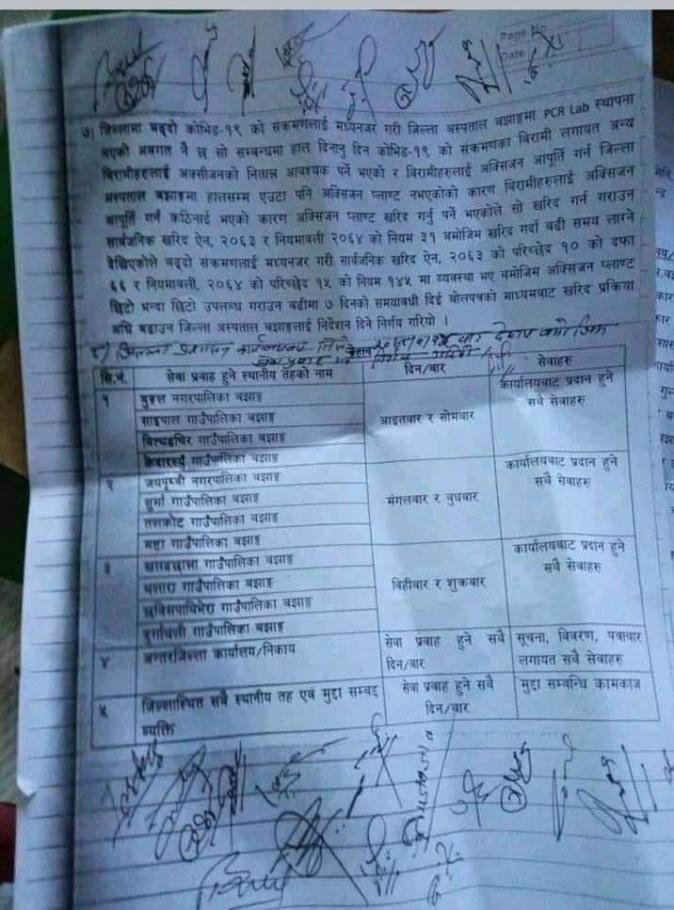 Page No.
Date
७) जिल्लामा बढ्दो कोभिड-१९ को संक्रमणलाई मध्यनजर गरी जिल्ला अस्पताल बझाङमा PCR Lab स्थापना
भएको अवगत नै छ सो सम्बन्धमा हाल दिनानु दिन कोभिड-१९ को संक्रमणका बिरामी लगायत अन्य
बिरामीहरुलाई अक्सीजनको नितान्त आवश्यक पर्ने भएको र बिरामीहरुलाई अक्सिजन आपूर्ति गर्न जिल्ला
अस्पताल बझाङमा हालसम्म एउटा पनि अक्सिजन प्लाण्ट नभएकोको कारण बिरामीहरुलाई अक्सिजन
आपूर्ति गर्न कठिनाई भएको कारण अक्सिजन प्लाण्ट खरिद गर्नु पर्ने भएकोले सो खरिद गर्न गराउन
सार्वजनिक खरिद ऐन, २०६३ र नियमावली २०६४ को नियम ३१ बमोजिम खरिद गर्दा बढी समय लाग्ने
देखिएकोले बढ्दो संक्रमणलाई मध्यनजर गरी सार्वजनिक खरिद ऐन, २०६३ को परिच्छेद १० को दफा
६६ र नियमावली, २०६४ को परिच्छेद १५ को नियम १४५ मा व्यवस्था भए बमोजिम अक्सिजन प्लाण्ट
छिटो भन्दा छिटो उपलब्ध गराउन बढीमा ७ दिनको समयावधी दिई बोलपत्रको माध्यमबाट खरिद प्रक्रिया
अघि बढाउन जिल्ला अस्पताल बझाङलाई निर्देशन दिने निर्णय गरियो ।
८) जिल्ला प्रशासन
सि.नं. सेवा प्रवाह हुने स्थानीय तहको नाम दिन/बार सेवाहरु
१ बुङ्गल नगरपालिका बझाङ आइतबार र सोमबार कार्यालयबाट प्रदान हुने सबै सेवाहरु
साइपाल गाउँपालिका बझाङ
बित्थडचिर गाउँपालिका बझाङ
केदारस्यूँ गाउँपालिका बझाङ
२ जयपृथ्वी नगरपालिका बझाङ मंगलबार र बुधबार कार्यालयबाट प्रदान हुने सबै सेवाहरु
सुर्मा गाउँपालिका बझाङ
तलकोट गाउँपालिका बझाङ
मष्टा गाउँपालिका बझाङ
३ खप्तडछान्ना गाउँपालिका बझाङ बिहीबार र शुक्रबार कार्यालयबाट प्रदान हुने सबै सेवाहरु
थलारा गाउँपालिका बझाङ
छबिसपाथिभेरा गाउँपालिका बझाङ
दुर्गाथली गाउँपालिका बझाङ
४ अन्तरजिल्ला कार्यालय/निकाय सेवा प्रवाह हुने सबै दिन/बार सूचना, विवरण, पत्राचार लगायत सबै सेवाहरु
५ जिल्लास्थित सबै स्थानीय तह एवं मुद्दा सम्बद्द व्यक्ति सेवा प्रवाह हुने सबै दिन/बार मुद्दा सम्बन्धि कामकाज